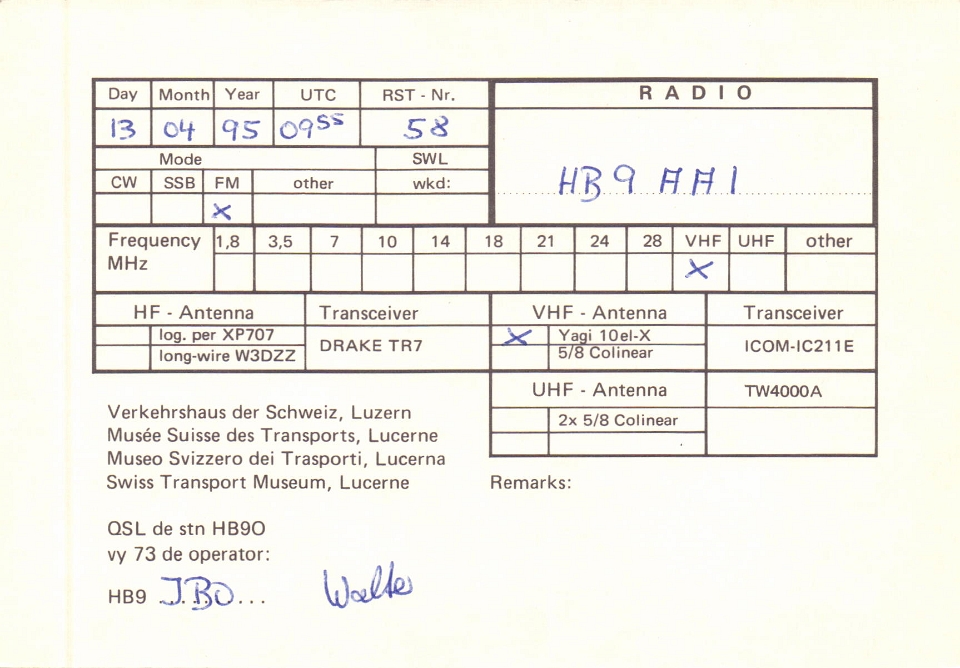 Day Month Year UTC RST - Nr. RADIO
13 04 95 09 55 58
HB9AAI
Mode SWL
CW SSB FM other wkd:
X
Frequency MHz 1,8 3,5 7 10 14 18 21 24 28 VHF UHF other
X
HF - Antenna Transceiver VHF - Antenna Transceiver
log. per XP707 DRAKE TR7 X Yagi 10el-X ICOM-IC211E
long-wire W3DZZ 5/8 Colinear
UHF - Antenna TW4000A
2x 5/8 Colinear
Verkehrshaus der Schweiz, Luzern
Musée Suisse des Transports, Lucerne
Museo Svizzero dei Trasporti, Lucerna
Swiss Transport Museum, Lucerne
Remarks:
QSL de stn HB9O
vy 73 de operator:
HB9 JBO... Walter